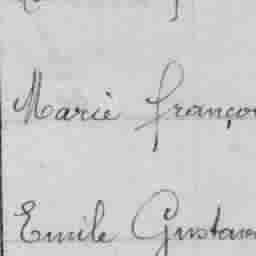 Marie Franço
Emile Gustave